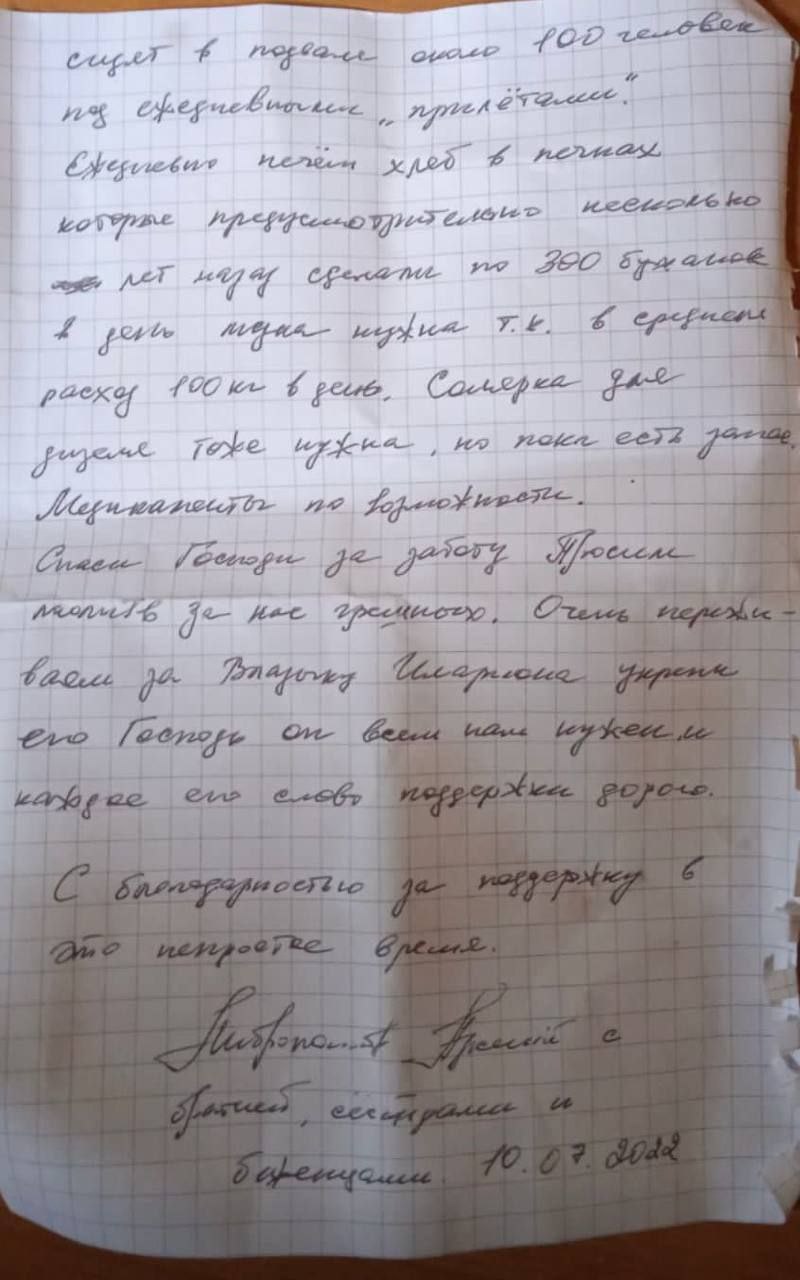 сидят в подвале около 100 человек
под ежедневными „прилётами".
Ежедневно печём хлеб в печках
которые предусмотрительно несколько
лет назад сделали по 300 буханок
в день мука нужна т.к. в среднем
расход 100 кг в день. Солярка для
дизеля тоже нужна, но пока есть запас.
Медикаменты по возможности.
Спаси Господи за заботу Просим
молитв за нас грешных. Очень пережи-
ваем за Владыку Илариона укрепи
его Господь он всем нам нужен и
каждое его слово поддержки дорого.
С благодарностью за поддержку в
это непростое время.
Митрополит Арсений с
братией, сёстрами и
беженцами. 10.07.2022